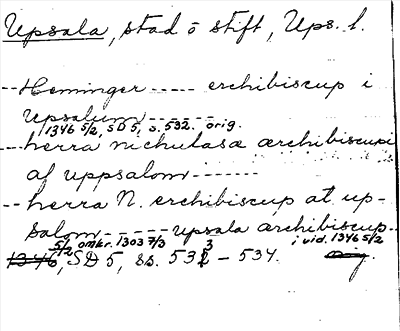 Upsala, stad o stift, Ups. l.
-- Heminger ----- erchibiscup i
Upsalum ------
1346 5/2, SD 5, s. 532. orig.
-- herra nichulasa ærchibiscupi
af uppsalom -------
-- herra N. erchibiscup at up-
salom ------ upsala archibiscup--
5/2 omkr. 1303 7/3 i vid. 1346 5/2
1346, SD 5, ss. 533 - 534.